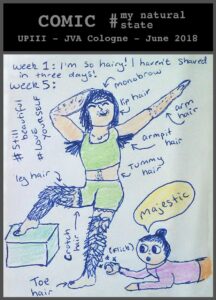 COMIC #my natural state
UPIII - JVA Cologne - June 2018
Week 1: I'm so hairy! I haven't shaved
in three days!
Week 5:
monobrow
lip hair
arm hair
armpit hair
Tummy hair
#Still beautiful
#LOVE YOURSELF
leg hair
Crotch hair
Toe hair
majestic
(flick)